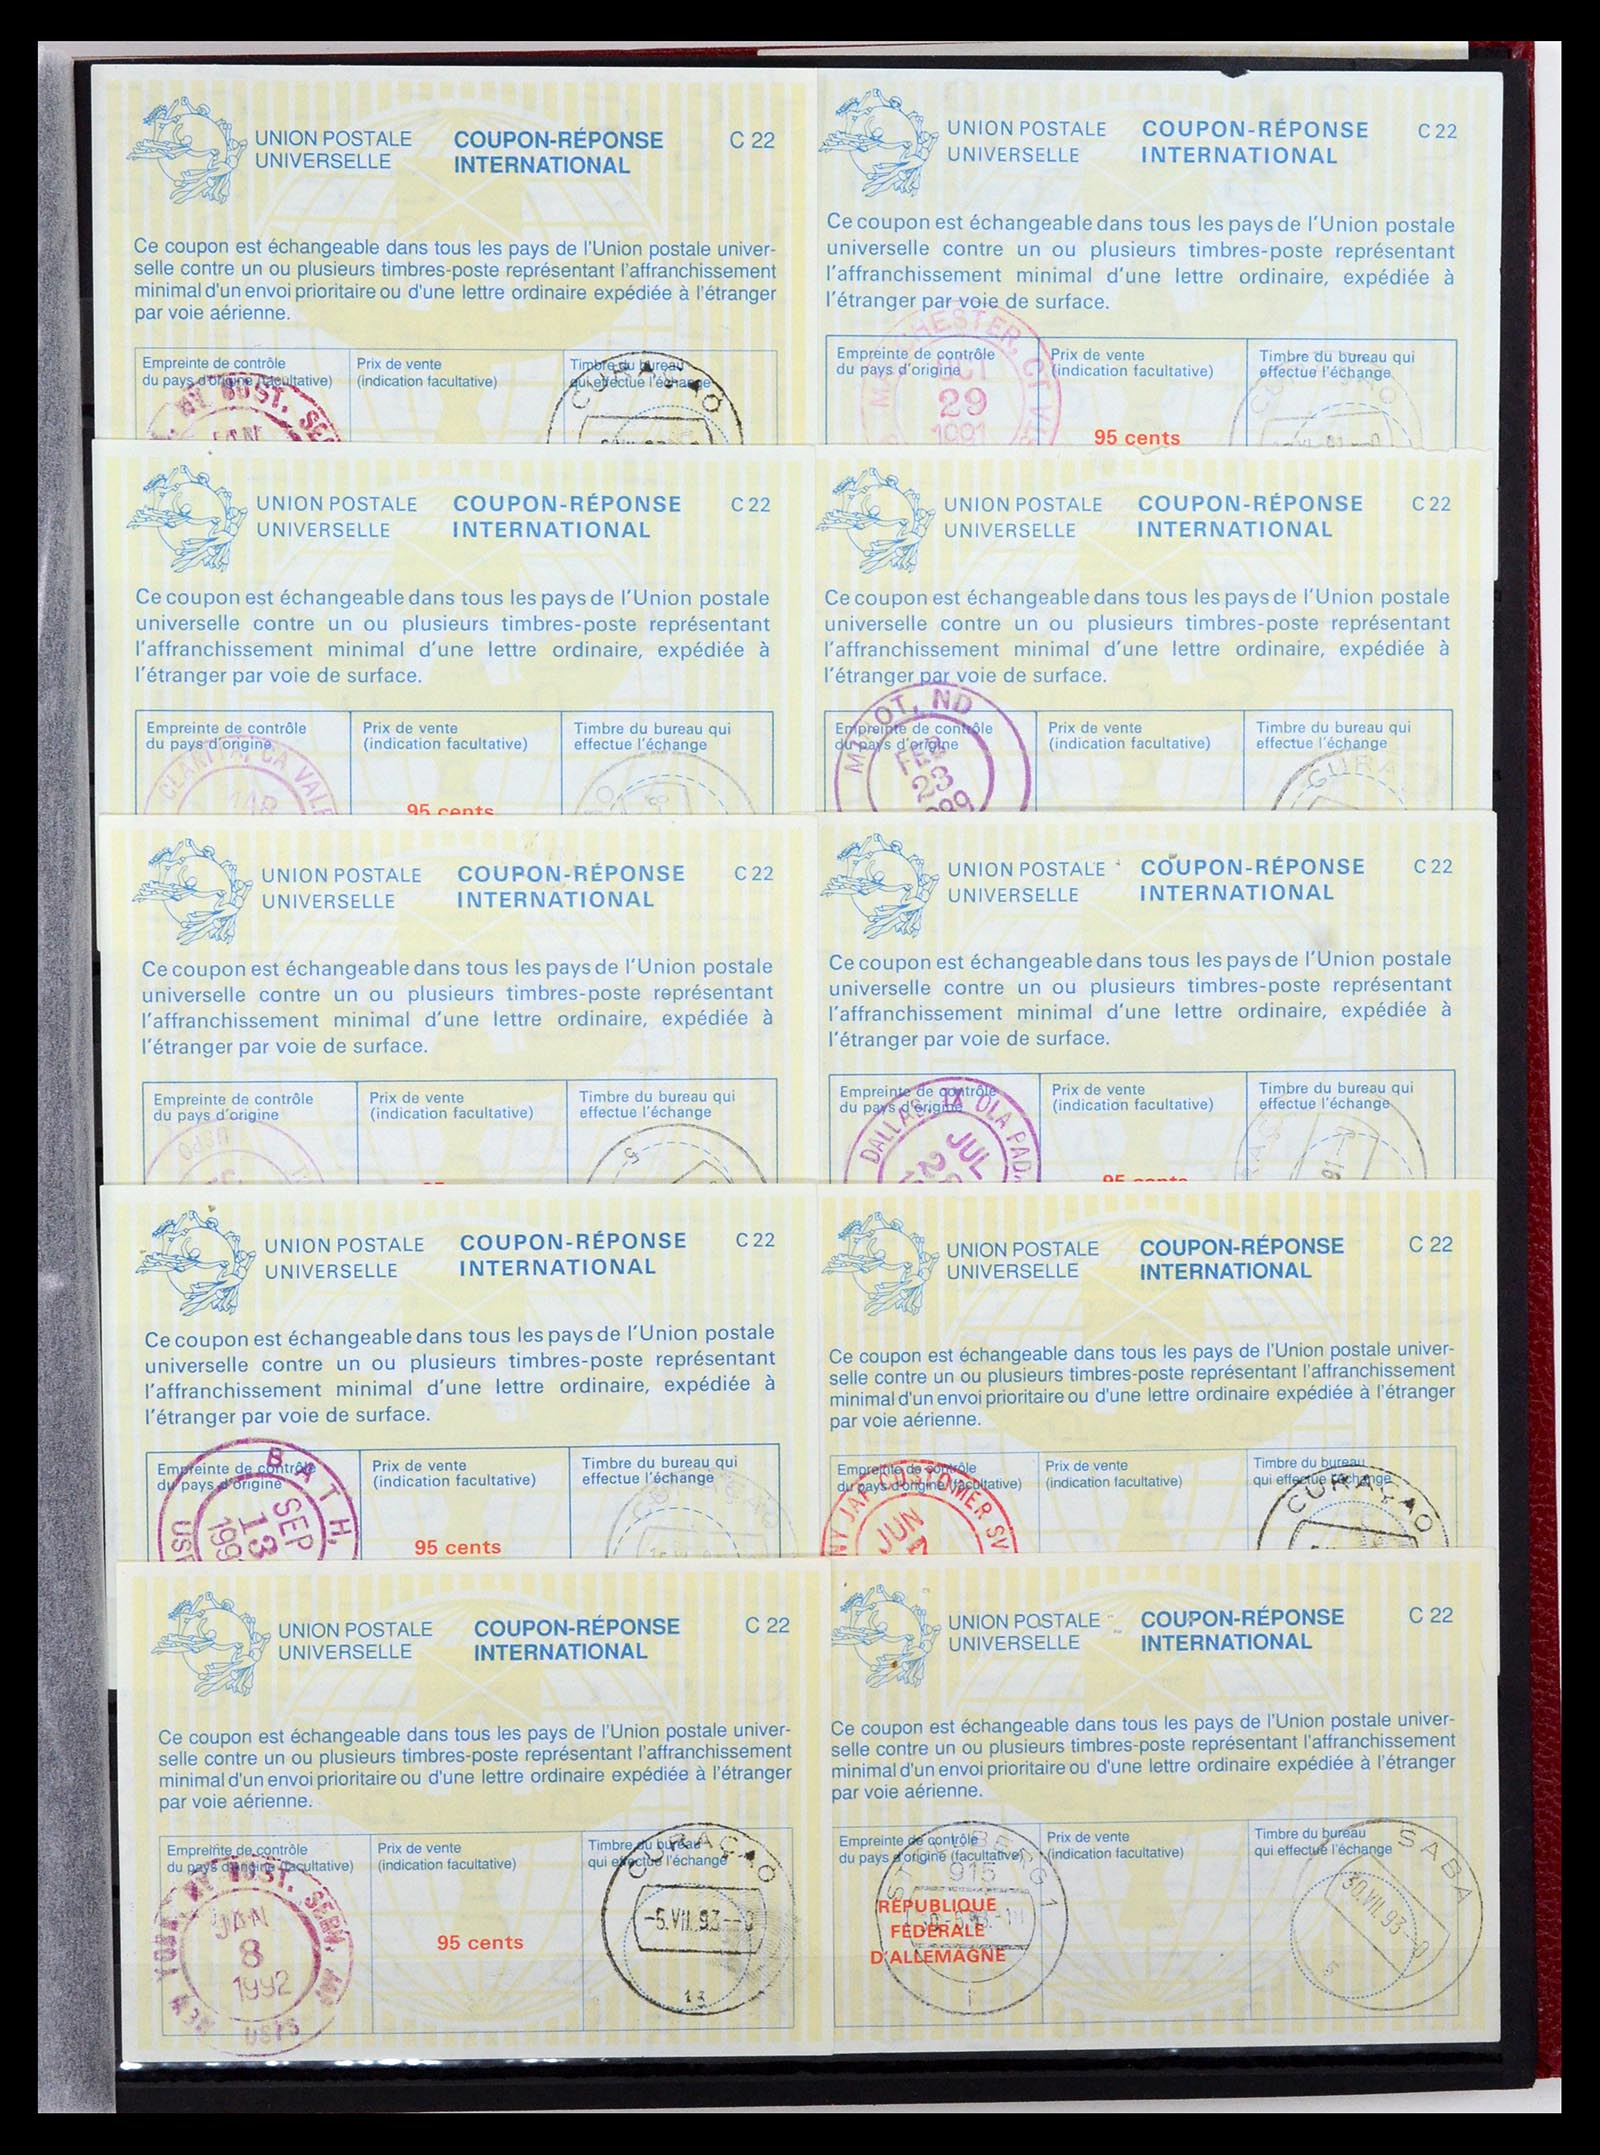 UNION POSTALE
UNIVERSELLE
COUPON-RÉPONSE
INTERNATIONAL
C 22
Ce coupon est échangeable dans tous les pays de l'Union postale univer-
selle contre un ou plusieurs timbres-poste représentant l'affranchissement
minimal d'un envoi prioritaire ou d'une lettre ordinaire expédiée à l'étranger
par voie aérienne.
Empreinte de contrôle
du pays d'origine (facultative)
Prix de vente
(indication facultative)
Timbre du bureau
qui effectue l'échange
CURAÇAO
UNION POSTALE
UNIVERSELLE
COUPON-RÉPONSE
INTERNATIONAL
C 22
Ce coupon est échangeable dans tous les pays de l'Union postale
universelle contre un ou plusieurs timbres-poste représentant
l'affranchissement minimal d'une lettre ordinaire, expédiée à
l'étranger par voie de surface.
Empreinte de contrôle
du pays d'origine
Prix de vente
(indication facultative)
Timbre du bureau qui
effectue l'échange
OCT
29
1991
95 cents
UNION POSTALE
UNIVERSELLE
COUPON-RÉPONSE
INTERNATIONAL
C 22
Ce coupon est échangeable dans tous les pays de l'Union postale
universelle contre un ou plusieurs timbres-poste représentant
l'affranchissement minimal d'une lettre ordinaire, expédiée à
l'étranger par voie de surface.
Empreinte de contrôle
du pays d'origine
Prix de vente
(indication facultative)
Timbre du bureau qui
effectue l'échange
95 cents
UNION POSTALE
UNIVERSELLE
COUPON-RÉPONSE
INTERNATIONAL
C 22
Ce coupon est échangeable dans tous les pays de l'Union postale
universelle contre un ou plusieurs timbres-poste représentant
l'affranchissement minimal d'une lettre ordinaire, expédiée à
l'étranger par voie de surface.
Empreinte de contrôle
du pays d'origine
Prix de vente
(indication facultative)
Timbre du bureau qui
effectue l'échange
MINOT, ND
FEB
23
UNION POSTALE
UNIVERSELLE
COUPON-RÉPONSE
INTERNATIONAL
C 22
Ce coupon est échangeable dans tous les pays de l'Union postale
universelle contre un ou plusieurs timbres-poste représentant
l'affranchissement minimal d'une lettre ordinaire, expédiée à
l'étranger par voie de surface.
Empreinte de contrôle
du pays d'origine
Prix de vente
(indication facultative)
Timbre du bureau qui
effectue l'échange
UNION POSTALE
UNIVERSELLE
COUPON-RÉPONSE
INTERNATIONAL
C 22
Ce coupon est échangeable dans tous les pays de l'Union postale
universelle contre un ou plusieurs timbres-poste représentant
l'affranchissement minimal d'une lettre ordinaire, expédiée à
l'étranger par voie de surface.
Empreinte de contrôle
du pays d'origine
Prix de vente
(indication facultative)
Timbre du bureau qui
effectue l'échange
DALLAS, TX
JUL
95 cents
UNION POSTALE
UNIVERSELLE
COUPON-RÉPONSE
INTERNATIONAL
C 22
Ce coupon est échangeable dans tous les pays de l'Union postale
universelle contre un ou plusieurs timbres-poste représentant
l'affranchissement minimal d'une lettre ordinaire, expédiée à
l'étranger par voie de surface.
Empreinte de contrôle
du pays d'origine
Prix de vente
(indication facultative)
Timbre du bureau qui
effectue l'échange
BATH,
SEP
13
95 cents
CURAÇAO
UNION POSTALE
UNIVERSELLE
COUPON-RÉPONSE
INTERNATIONAL
C 22
Ce coupon est échangeable dans tous les pays de l'Union postale univer-
selle contre un ou plusieurs timbres-poste représentant l'affranchissement
minimal d'un envoi prioritaire ou d'une lettre ordinaire expédiée à l'étranger
par voie aérienne.
Empreinte de contrôle
du pays d'origine (facultative)
Prix de vente
(indication facultative)
Timbre du bureau
qui effectue l'échange
NY JAF CUSTOMER SV
JUN
CURAÇAO
UNION POSTALE
UNIVERSELLE
COUPON-RÉPONSE
INTERNATIONAL
C 22
Ce coupon est échangeable dans tous les pays de l'Union postale univer-
selle contre un ou plusieurs timbres-poste représentant l'affranchissement
minimal d'un envoi prioritaire ou d'une lettre ordinaire expédiée à l'étranger
par voie aérienne.
Empreinte de contrôle
du pays d'origine (facultative)
Prix de vente
(indication facultative)
Timbre du bureau
qui effectue l'échange
JAN
8
1992
95 cents
CURAÇAO
-5.VII.93
UNION POSTALE
UNIVERSELLE
COUPON-RÉPONSE
INTERNATIONAL
C 22
Ce coupon est échangeable dans tous les pays de l'Union postale univer-
selle contre un ou plusieurs timbres-poste représentant l'affranchissement
minimal d'un envoi prioritaire ou d'une lettre ordinaire expédiée à l'étranger
par voie aérienne.
Empreinte de contrôle
du pays d'origine (facultative)
Prix de vente
(indication facultative)
Timbre du bureau
qui effectue l'échange
915
RÉPUBLIQUE
FÉDÉRALE
D'ALLEMAGNE
SABA
30.VII.93